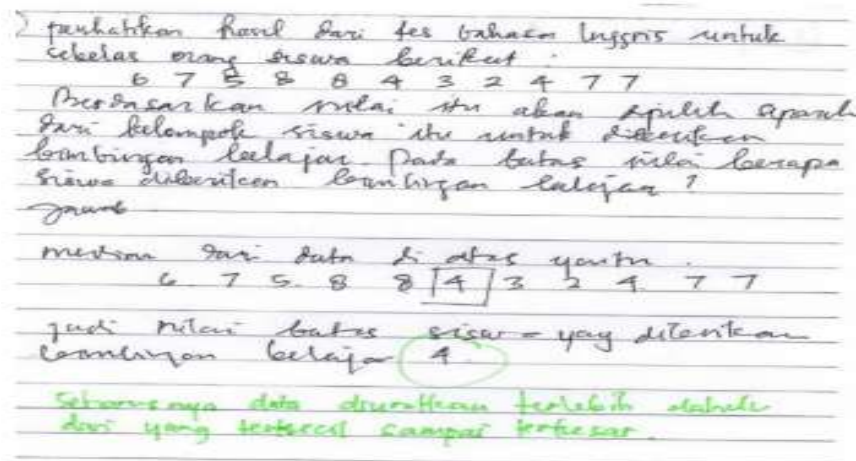 perhatikan hasil dari tes bahasa Inggris untuk
sebelas orang siswa berikut :
6 7 5 8 8 4 3 2 4 7 7
Berdasarkan nilai itu akan dipilih separuh
dari kelompok siswa itu untuk diberikan
bimbingan belajar. Pada batas nilai berapa
siswa diberikan bimbingan belajar ?
Jawab
median dari data di atas yaitu .
6 7 5 8 8 4 3 2 4 7 7
jadi nilai batas siswa yang ditentukan
bimbingan belajar 4.
Seharusnya data diurutkan terlebih dahulu
dari yang terkecil sampai terbesar.